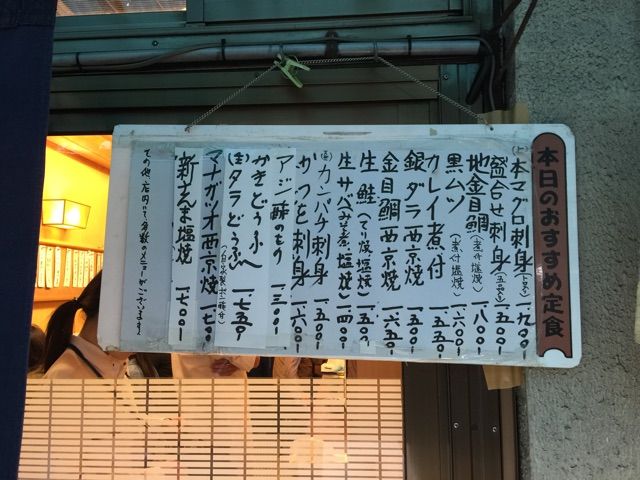 本日のおすすめ定食
(上)本マグロ刺身 一九〇〇
盛合せ刺身(五点盛) 一五〇〇
地金目鯛(煮付 塩焼) 一八〇〇
黒ムツ(煮付 塩焼) 一六〇〇
カレイ煮付 一五五〇
銀ダラ西京焼
金目鯛西京焼 一六五〇
生鮭(てり焼 塩焼) 一五〇〇
生サバ(みそ煮 塩焼) 一四〇〇
カンパチ刺身 一五〇〇
かつを刺身 一六〇〇
アジ酢のもの 一三〇〇
かきどうふ
タラどうふ 一七五〇
マナガツオ西京焼 一七〇〇
新さんま塩焼 一七〇〇
その他店内にて多数のメニューがございます